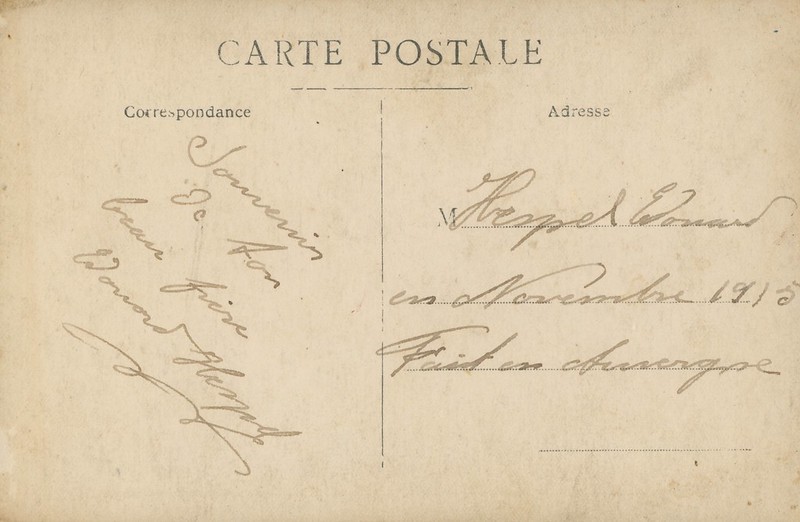 CARTE POSTALE
Correspondance
Souvenir
de ton
beau frère
Edouard Herpel
Adresse
M Herpel Edouard
en Novembre 1915
Fait en Auvergne